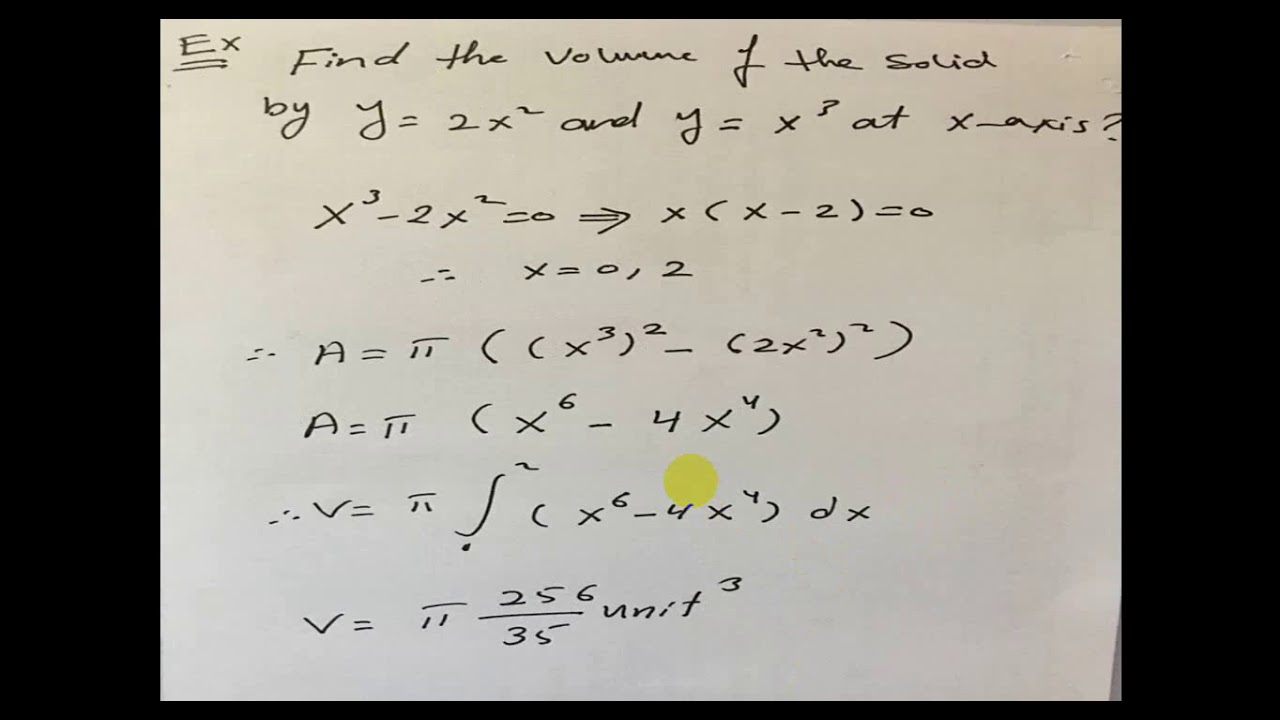 Ex Find the Volume of the solid
by y = 2x² and y = x³ at x-axis?
x³ - 2x² = 0 ⇒ x(x - 2) = 0
∴ x = 0, 2
∴ A = π ((x³)² - (2x²)²)
A = π (x⁶ - 4x⁴)
∴ V = π ∫₀² (x⁶ - 4x⁴) dx
V = π 256/35 unit³